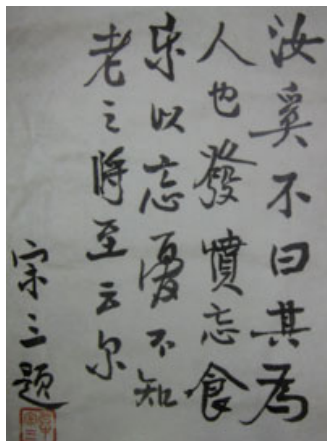 汝奚不曰其為
人也發憤忘食
乐以忘憂不知
老之將至云尔
宗三題